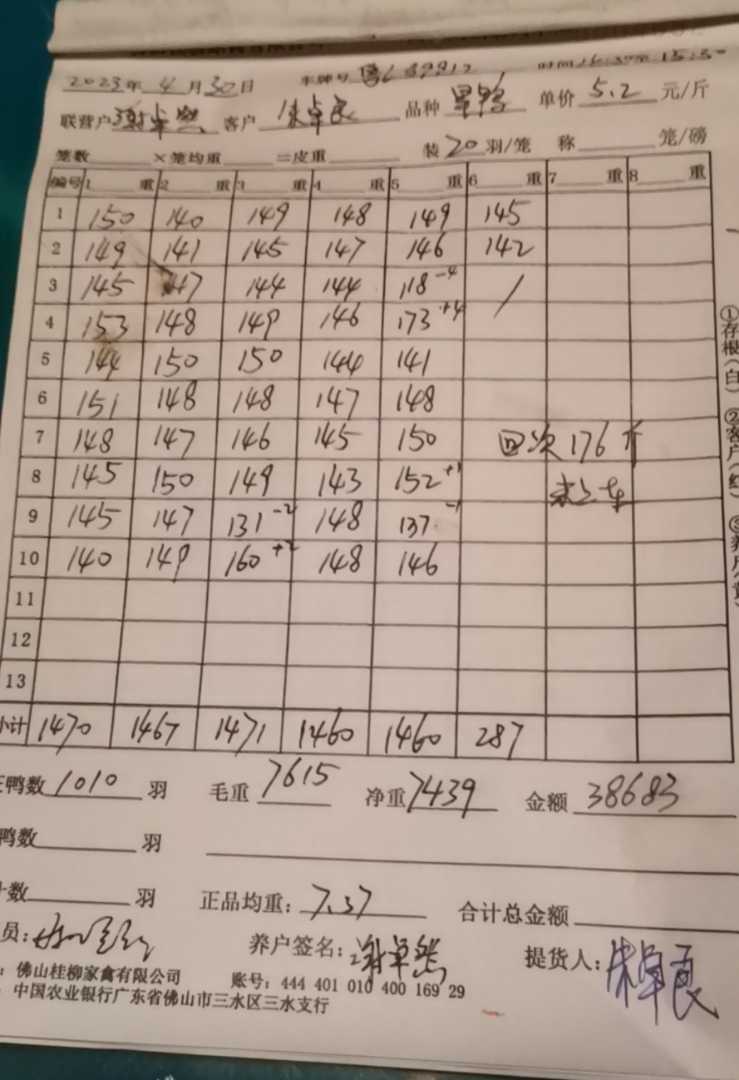 2023年 4月30日 车牌号 时间 15:50
联营户 谢卓然 客户 朱卓良 品种 单价 5.2 元/斤
笼数 ×笼均重 =皮重 装 20 羽/笼 称 笼/磅
编号 1 重 2 重 3 重 4 重 5 重 6 重 7 重 8 重
1 150 140 149 148 149 145
2 149 141 145 147 146 142
3 145 147 144 144 118-4 /
4 153 148 149 146 173+4
5 144 150 150 144 141
6 151 148 148 147 148
7 148 147 146 145 150 回次176斤
8 145 150 149 143 152+1 未上车
9 145 147 131-2 148 137-1
10 140 149 160+2 148 146
11
12
13
小计 1470 1467 1471 1460 1460 287
鸭数 1010 羽 毛重 7615 净重 7439 金额 38683
鸭数 羽
数 羽 正品均重: 7.37 合计总金额
员: 养户签名: 谢卓然 提货人: 朱卓良
: 佛山桂柳家禽有限公司 账号: 444 401 010 400 169 29
: 中国农业银行广东省佛山市三水区三水支行
①存根(白) ②客户(红) ③养户(黄)